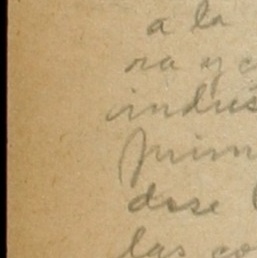 a la
ra y c
indus
prim
dose
las co